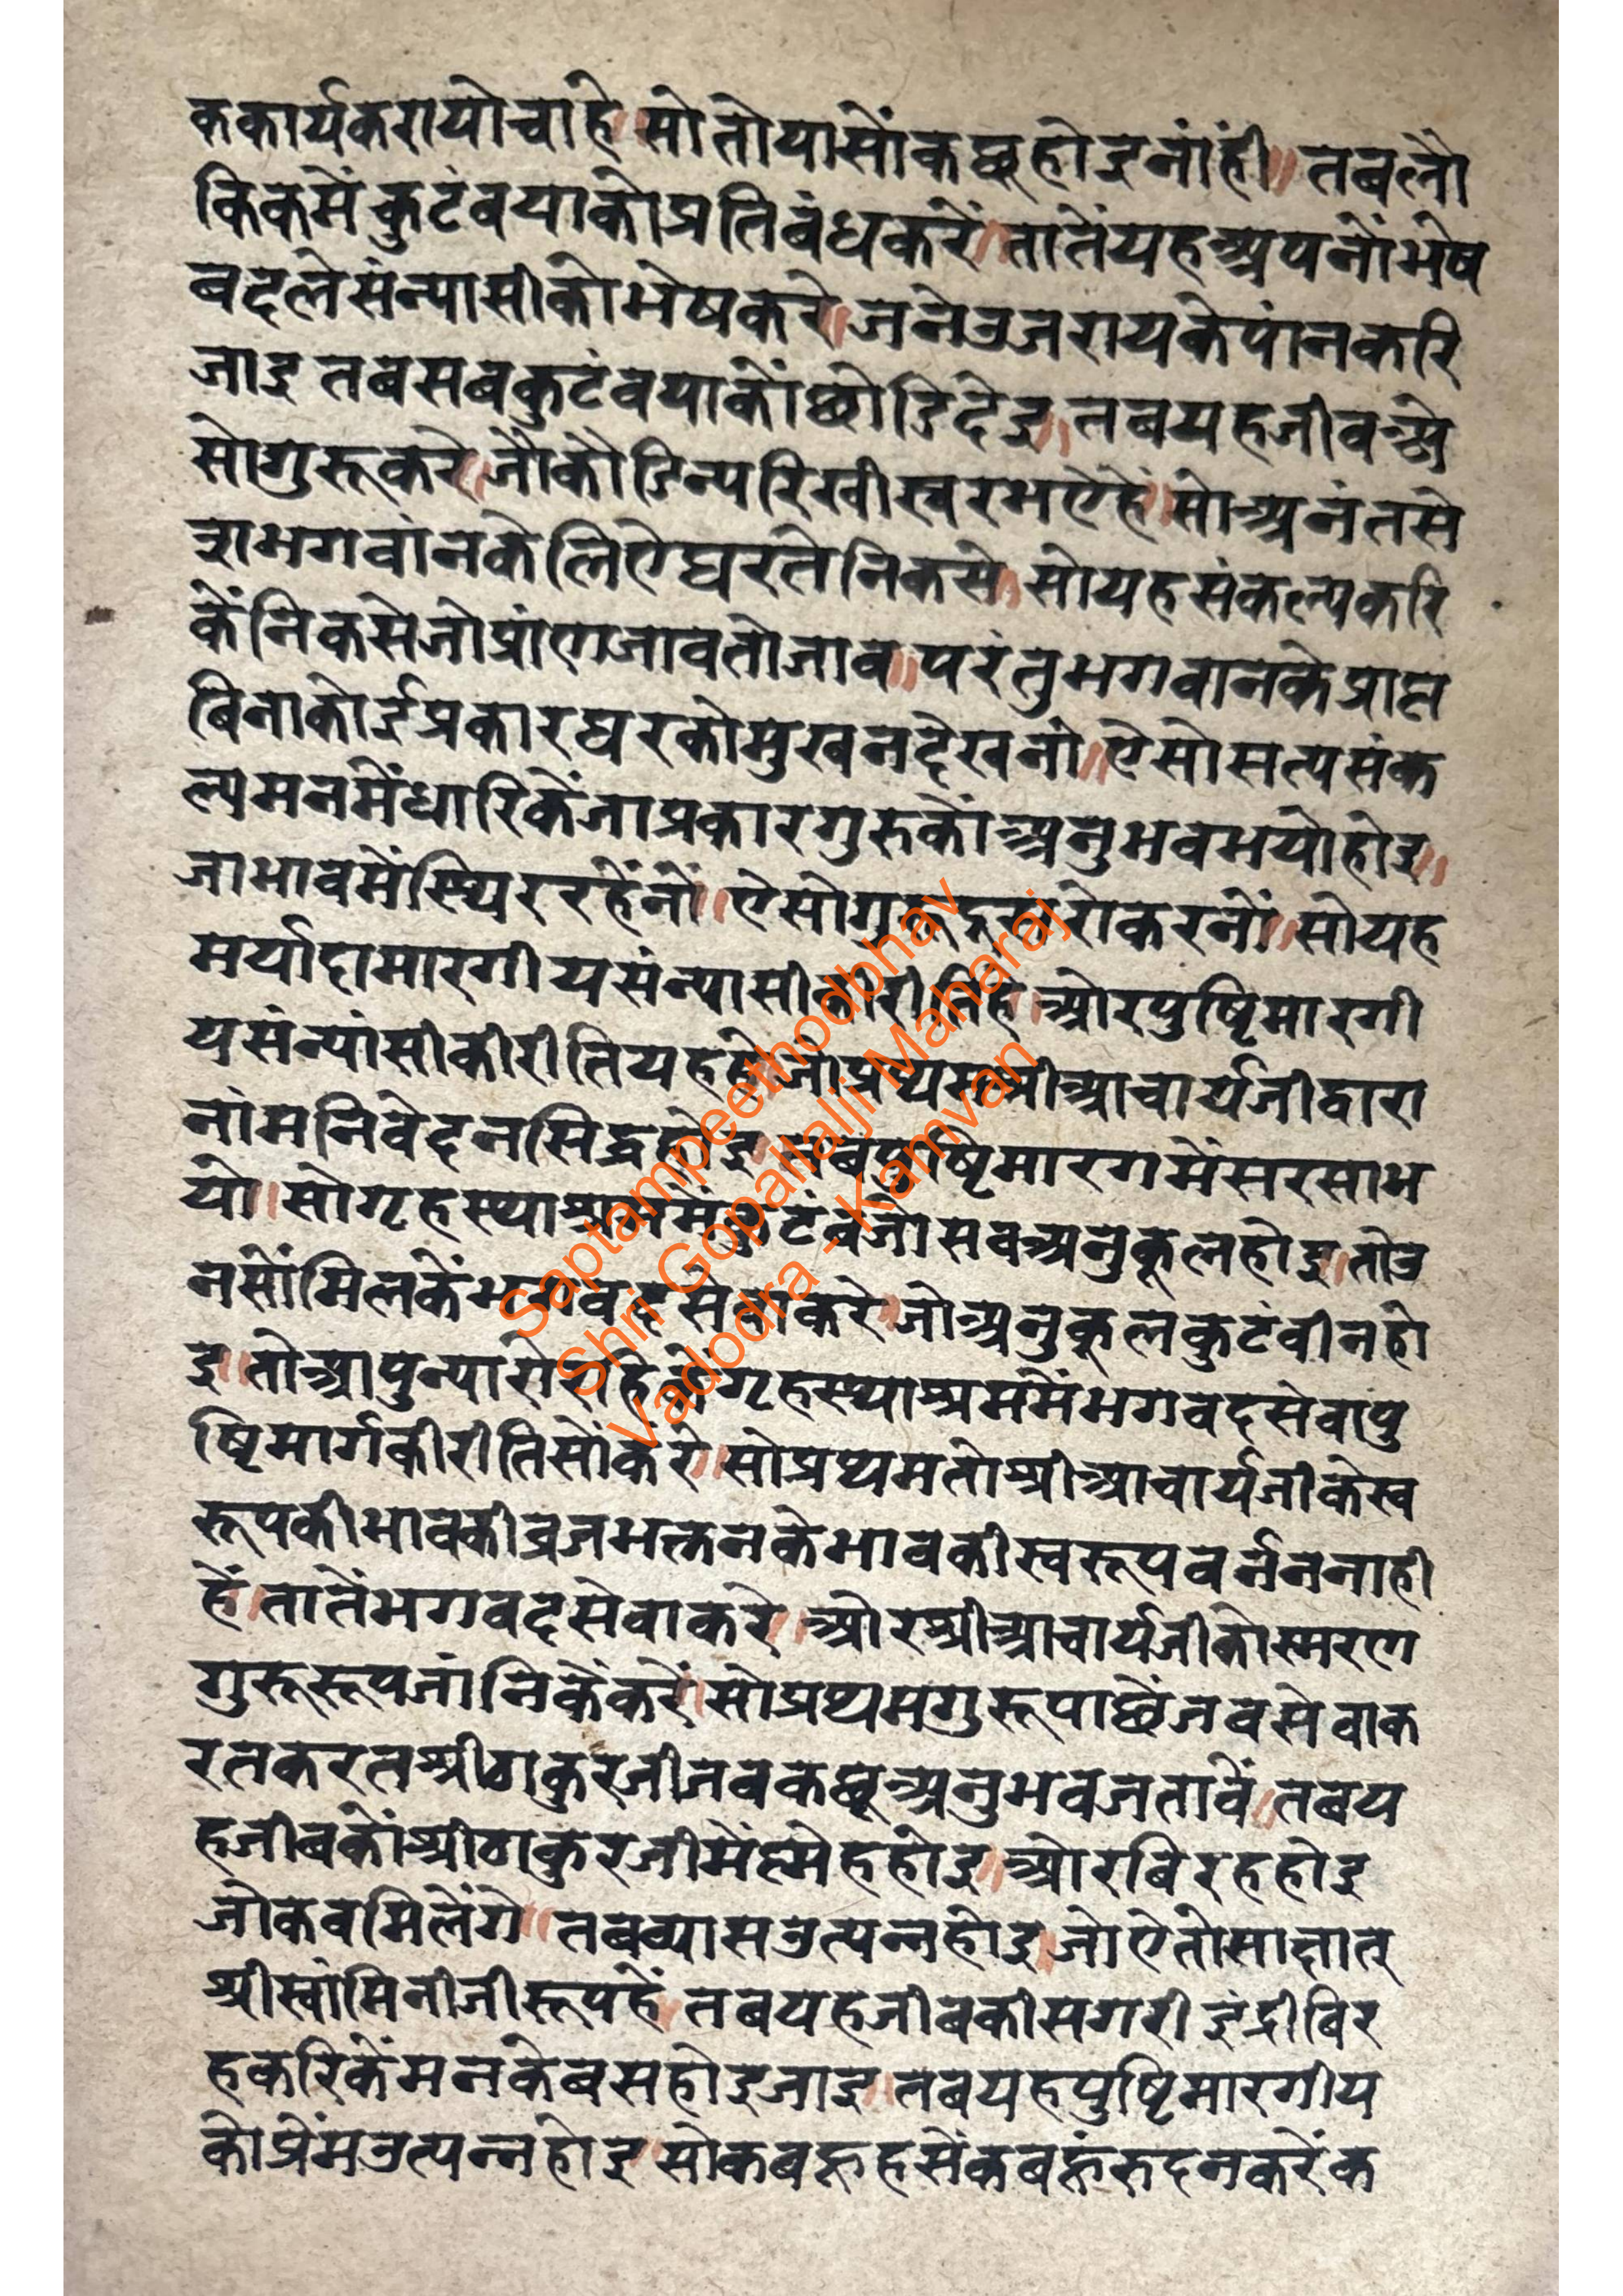 ककार्यकरायोचाहे॥सोतोयासोंकछूहोइनांही॥तबलौ
किकमेंकुटंबयाकोप्रतिबंधकरें॥तातेंयहअपनोंभेष
बदलेसंन्यासीकोभेषकरे॥जनेउजरायकेपांनकरि
जाइतबसबकुटंबयाकोंछोडिदेइ॥तबयहजीवऐ
सोगुरूकरे॥जौकौडिन्यरिखीस्वरभऐहें॥सोअनंतसे
राभगवांनकेलिऐघरतेनिकसे॥सोयहसंकल्पकरि
केंनिकसेजोप्रांणजावतोजाव॥परंतुभगवानकेप्राप्त
बिनाकोईप्रकारघरकोमुखनदेखनों॥ऐसोसत्यसंक
ल्पमनमेंधारिकेंजाप्रकारगुरुकोंअनुभवभयोहोइ॥
जाभावमेंस्थिररहेंनों॥ऐसोगुरूदूसरोकरनों॥सोयह
मर्यादामारगीयसंन्यासीकीरीतिहे॥ओरपुष्टिमारगी
यसंन्यांसीकीरीतियहहे॥जोप्रथमश्रीआचार्यजीद्वारा
नांमनिवेदनसिद्धहोइ॥तबपुष्टिमारगमेंसरसाभ
यो॥सोगृहस्थाश्रममेंकुटंबजोसबअनुकूलहोइ॥तोउ
नसोंमिलकेंभगवदसेवाकरे॥जोअनुकूलकुटंबीनहो
इ॥तोआपुन्यारोरहिकेंगृहस्थाश्रममेंभगवदसेवापु
ष्टिमार्गकीरीतिसोंकरे॥सोप्रथमतोश्रीआचार्यजीकेस्व
रूपकीभावकीव्रजभक्तनकेभावकीस्वरूपवर्ननांही
हें॥तातेंभगवदसेवाकरे॥ओरश्रीआचार्यजीकोस्मरण
गुरूरूपजांनिकेंकरें॥सोप्रथमगुरूपाछेंजबसेवाक
रतकरतश्रीठाकुरजीजबकछूअनुभवजतावें॥तबय
हजीबकोंश्रीठाकुरजीमेंस्नेहहोइ॥ओरबिरहहोइ
जोकबमिलेंगे॥तबव्यासउत्पन्नहोइ॥जोऐतोसाक्षात्
श्रीस्वांमिनीजीरूपहें॥तबयहजीबकीसगरीइंद्रीबिर
हकरिकेंमनकेबसहोइजाइ॥तबयहपुष्टिमारगीय
कोप्रेंमउत्पन्नहोइ॥सोकबहूहसेंकबहूंरुदनकरेंक
Saptampeethodbhav
Shri Gopallalji Maharaj
Vadodra - Kamvan